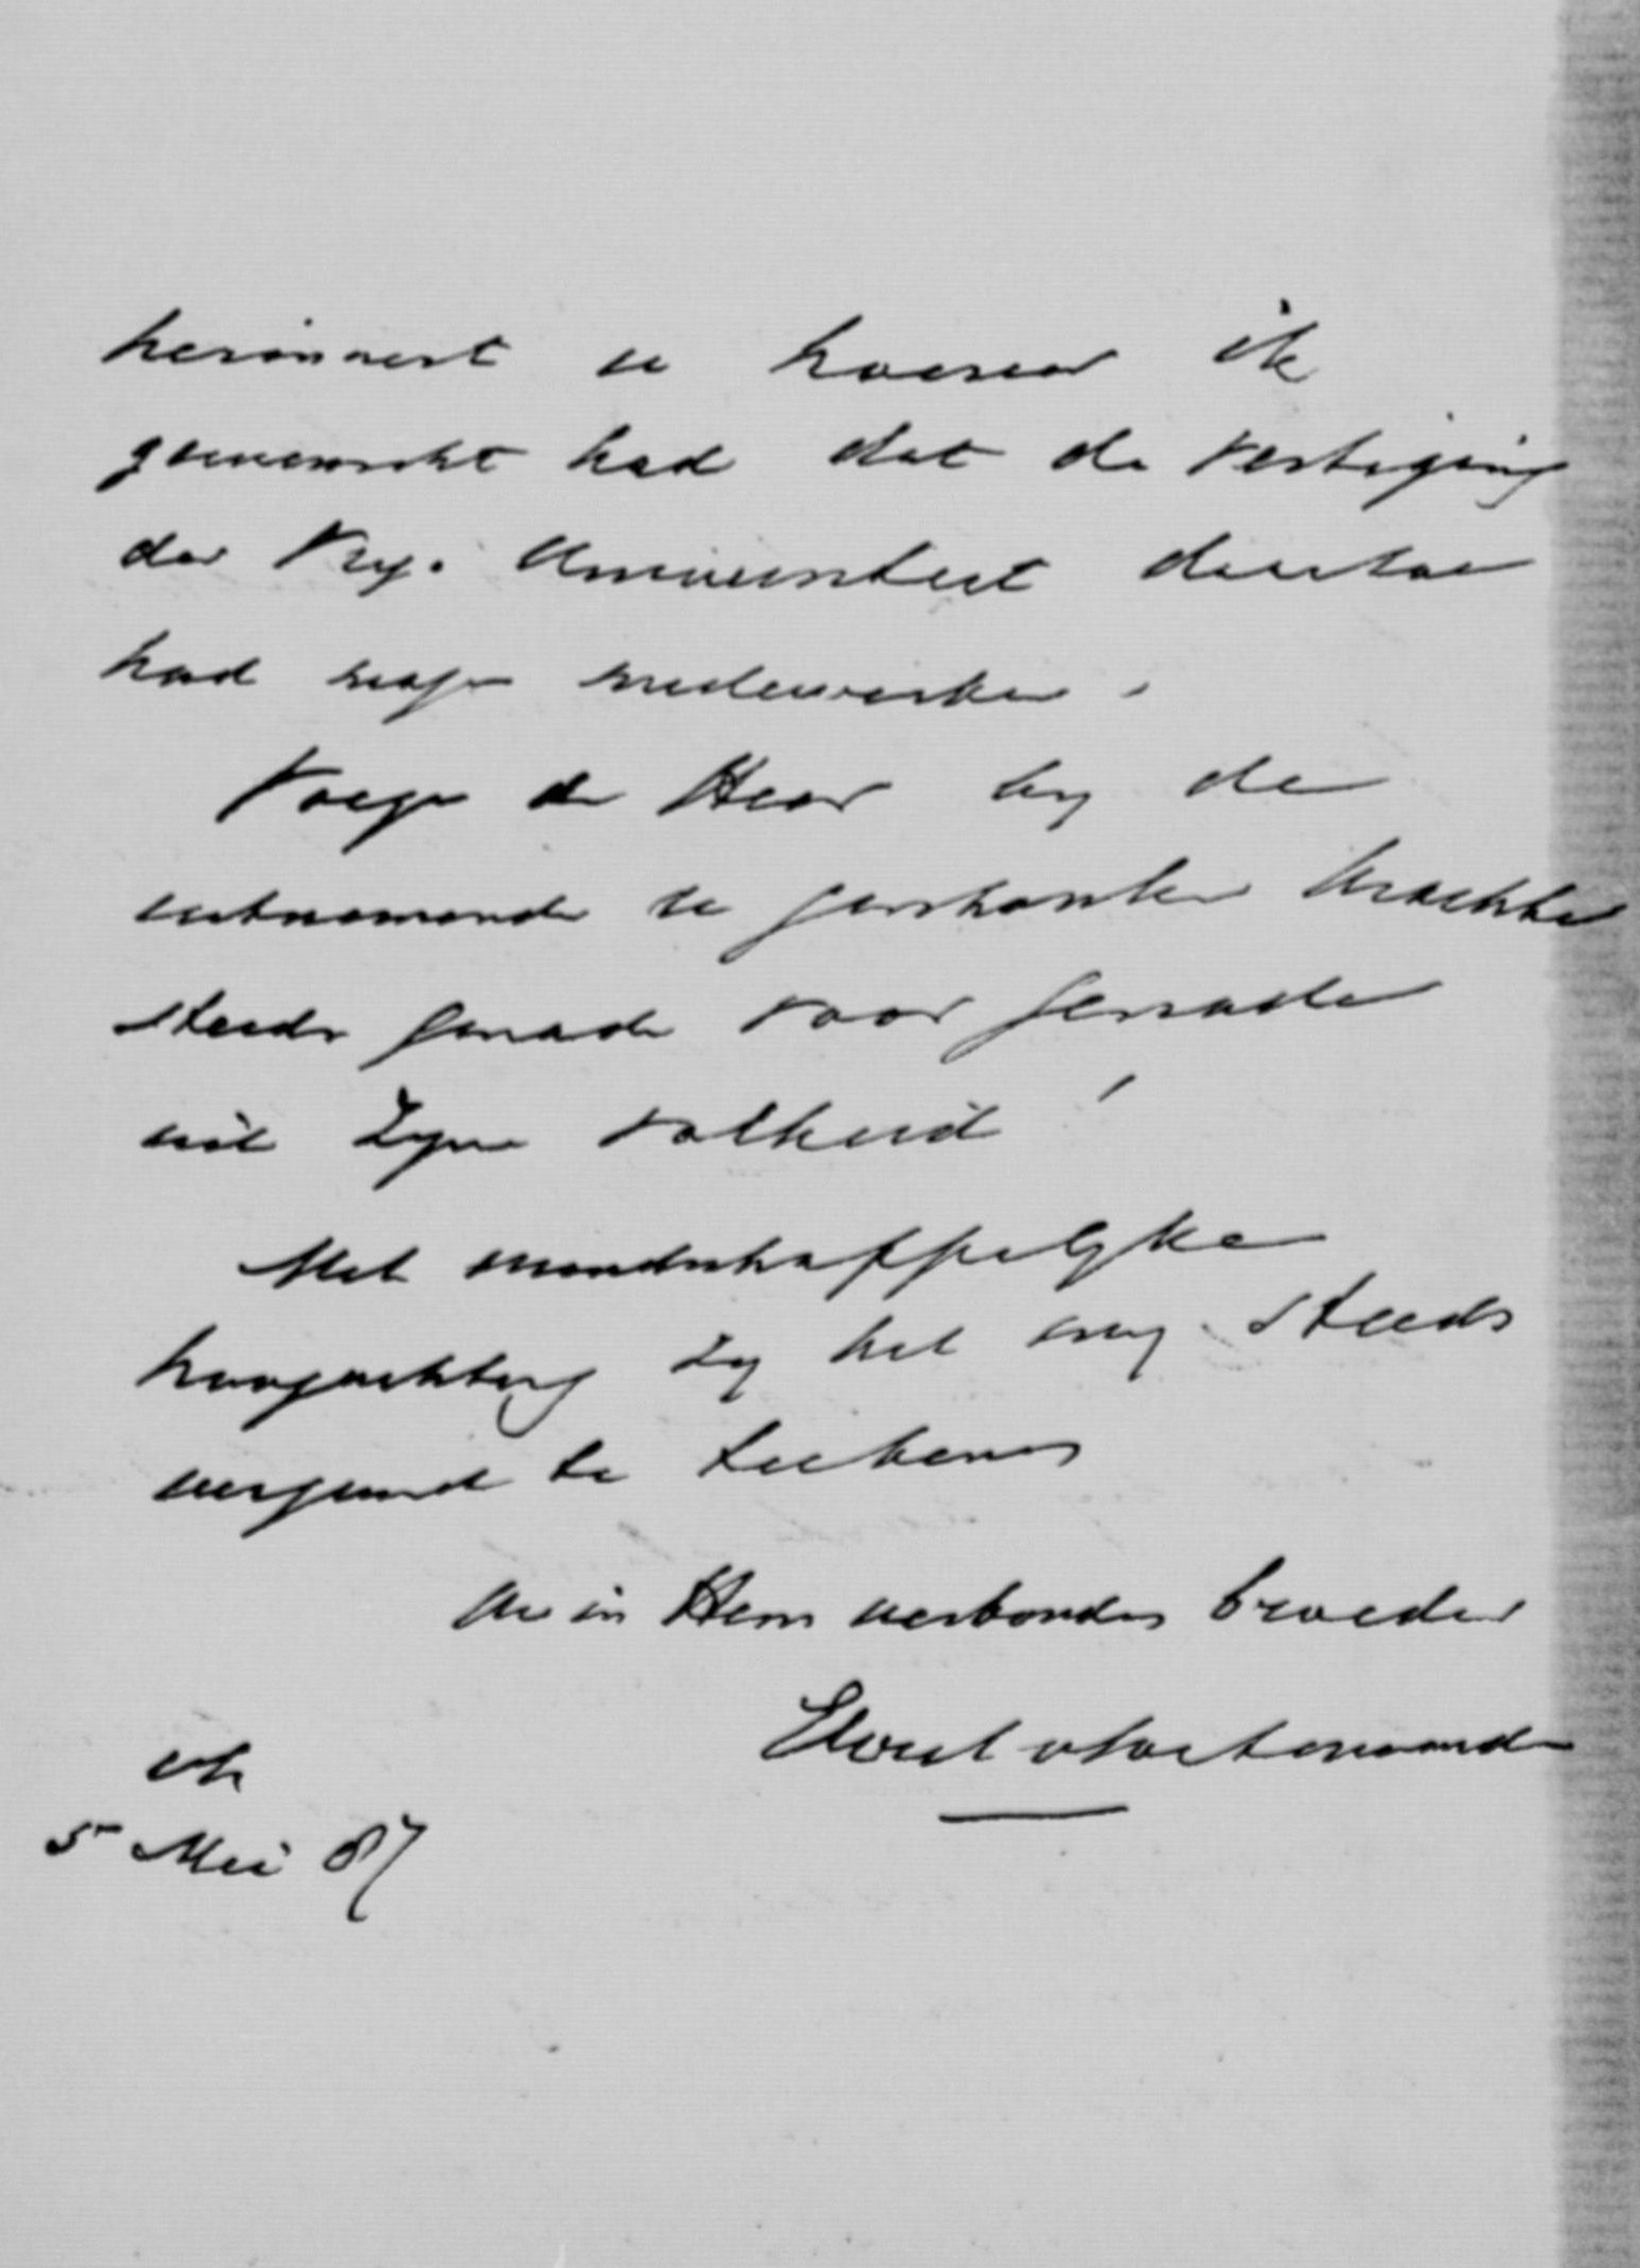 herinnert u hoezeer ik
gewenscht had dat de Vestiging
der Vrye Universiteit daartoe
had mogen medewerken.
Voege de Heer by de
uitnemende u geschonken krachten
steeds genade voor genade
uit Zyne volheid!
Met vriendschappelyke
hoogachting zy het my steeds
vergund te teekenen
Uw in Hem verbonden broeder
5 Mei 87